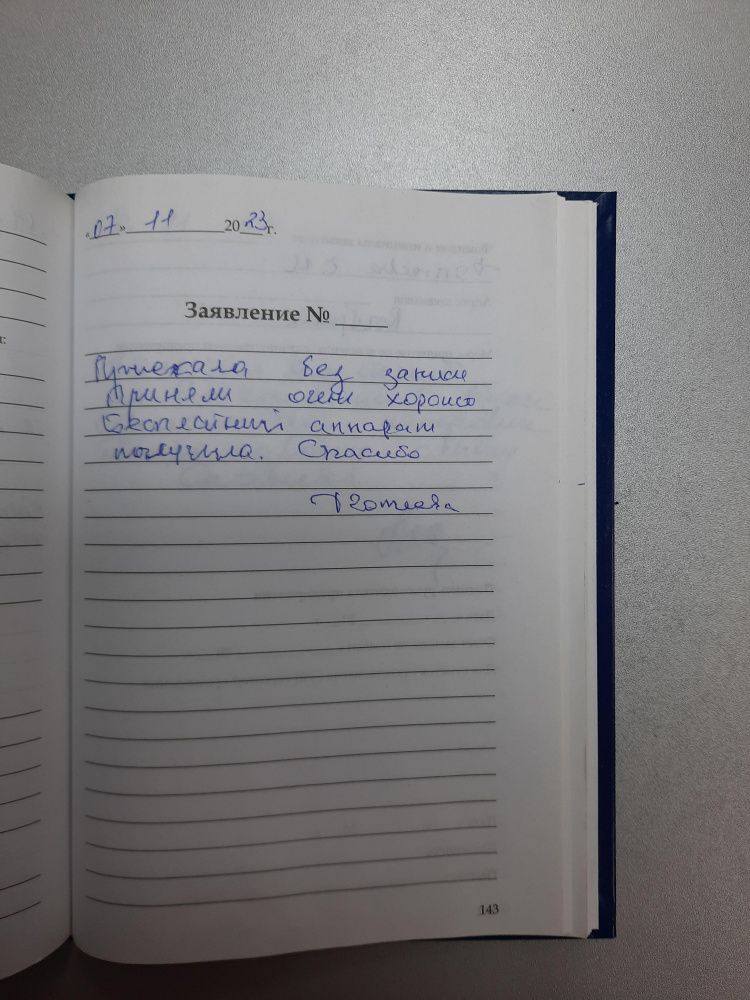 «07» 11 2023 г.
Заявление №
Приежала без записи
Приняли очень хорошо
Бесплатний аппарат
получила. Спасибо
143